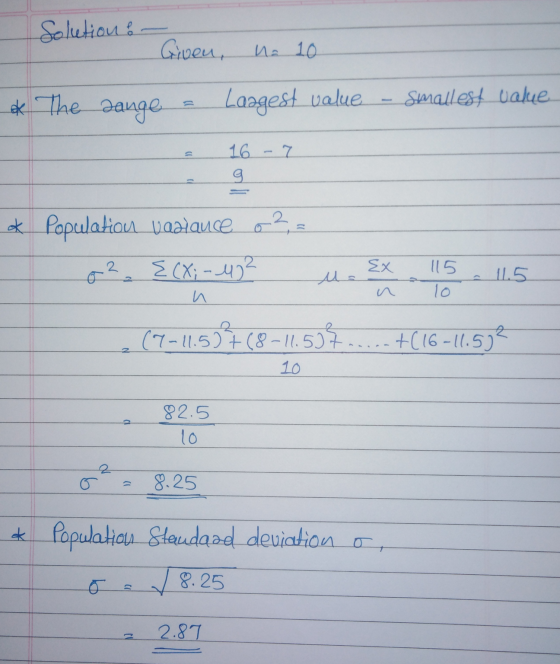 Solution :—
Given, n = 10
* The range = Largest value - smallest value
= 16 - 7
= 9
* Population variance σ², =
σ² = Σ(Xi - μ)² / n    μ = Σx / n = 115 / 10 = 11.5
= (7-11.5)² + (8-11.5)² + ..... + (16-11.5)² / 10
= 82.5 / 10
σ² = 8.25
* Population Standard deviation σ,
σ = √8.25
= 2.87